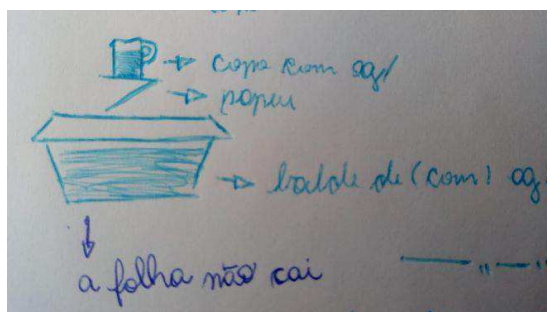 copo com ag/
papel
balde de (com) ag.
a folha não cai